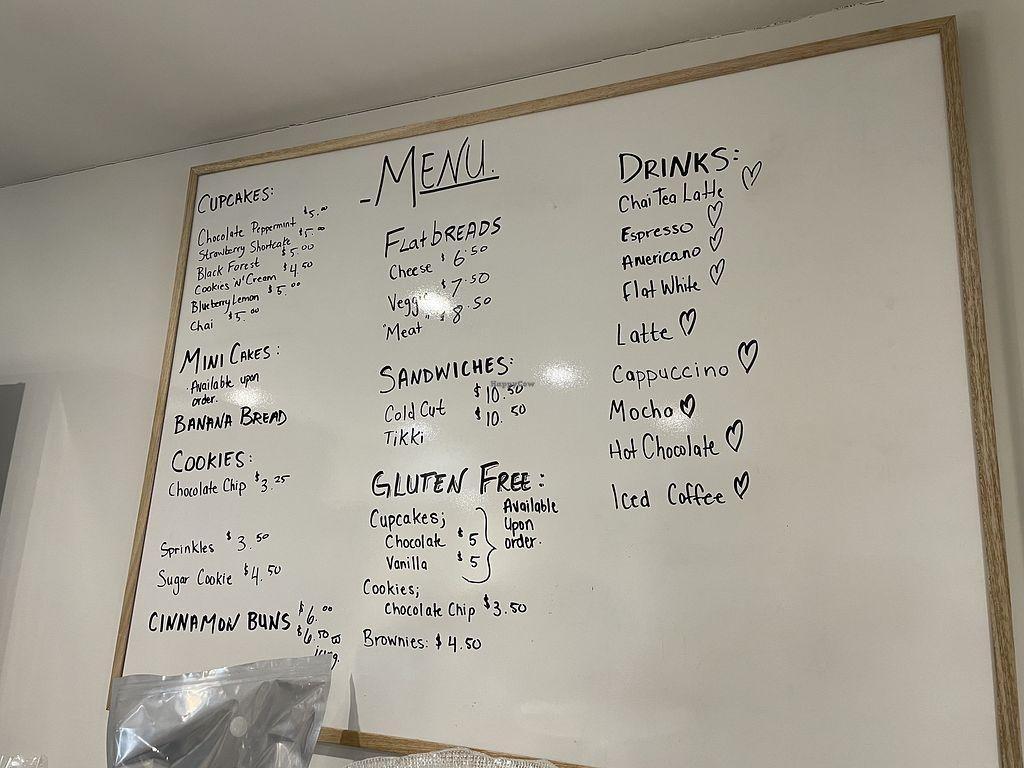 MENU.
CUPCAKES:
Chocolate Peppermint $5.00
Strawberry Shortcake $5.00
Black Forest $5.00
Cookies 'N' Cream $4.50
Blueberry Lemon $5.00
Chai $5.00
MINI CAKES:
Available upon
order.
BANANA BREAD
COOKIES:
Chocolate Chip $3.25
Sprinkles $3.50
Sugar Cookie $4.50
CINNAMON BUNS $6.00
$6.50
icing.
FlatBREADS
Cheese $6.50
Veggie $7.50
"Meat" $8.50
SANDWICHES:
Cold Cut $10.50
Tikki $10.50
HappyCow
GLUTEN FREE:
Cupcakes;
Chocolate $5
Vanilla $5
Available
Upon
order.
Cookies;
Chocolate Chip $3.50
Brownies: $4.50
DRINKS:
Chai Tea Latte
Espresso
Americano
Flat White
Latte
Cappuccino
Mocha
Hot Chocolate
Iced Coffee